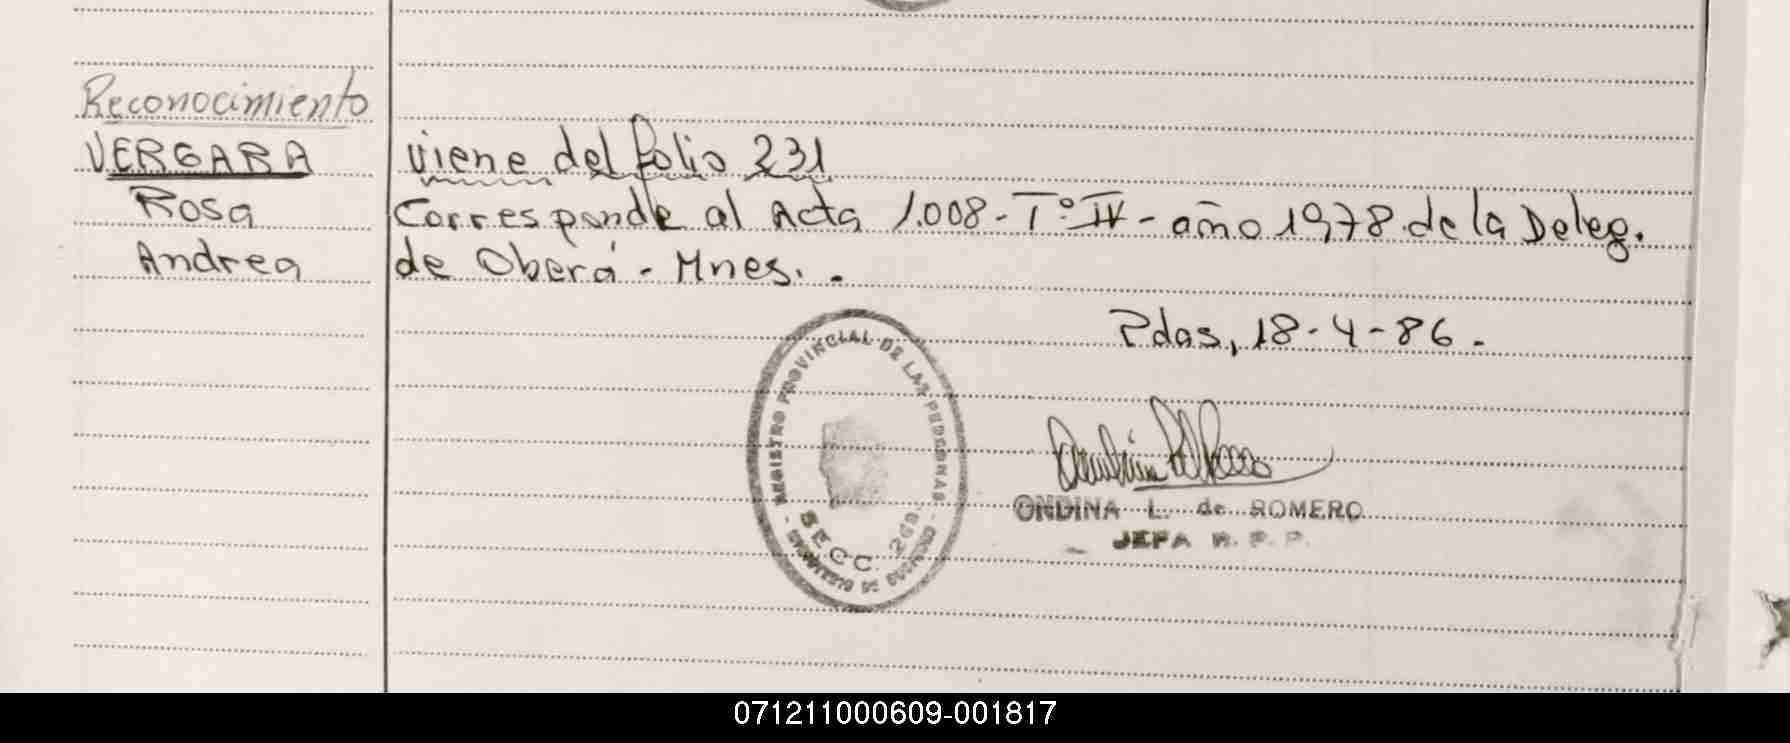 Reconocimiento
VERGARA
Rosa
Andrea
viene del folio 231
Corresponde al Acta 1.008 - Tº IV - año 1978 de la Deleg.
de Oberá - Mnes. . -
Pdas, 18 - 4 - 86 . -
REGISTRO PROVINCIAL DE LAS PERSONAS
SECC. 268
ONDINA L. de ROMERO
JEFA R. P. P.
071211000609-001817